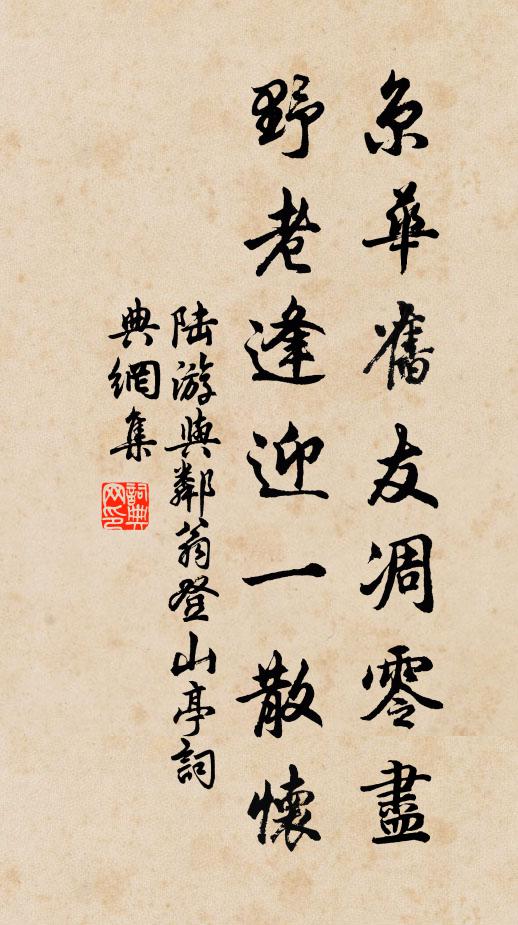 京華舊友凋零盡
野老逢迎一散懷
陸游與鄰翁登山亭詞
典網集
詞典网印